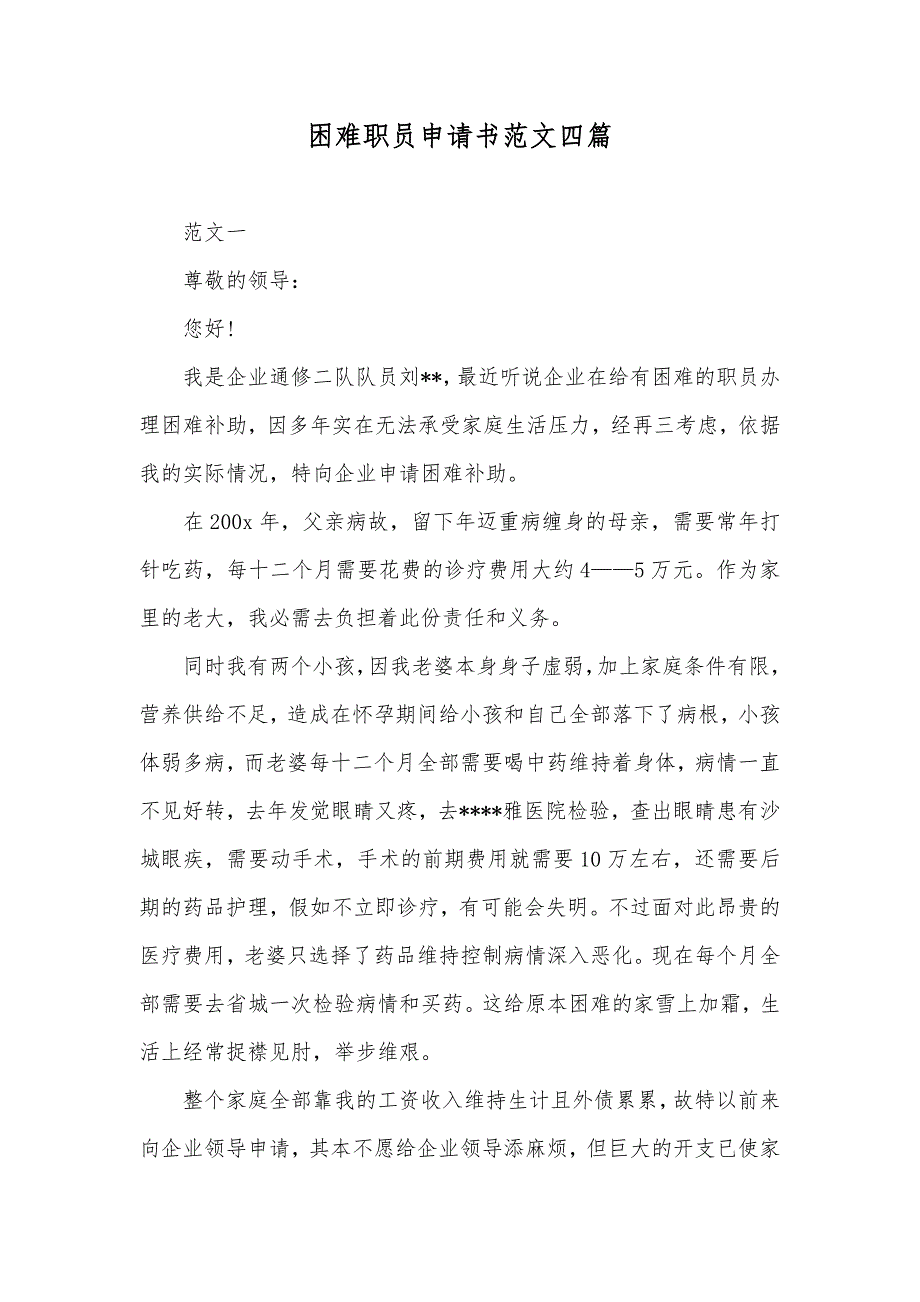 困难职员申请书范文四篇
范文一
尊敬的领导：
您好!
我是企业通修二队队员刘**，最近听说企业在给有困难的职员办
理困难补助，因多年实在无法承受家庭生活压力，经再三考虑，依据
我的实际情况，特向企业申请困难补助。
在 200x 年，父亲病故，留下年迈重病缠身的母亲，需要常年打
针吃药，每十二个月需要花费的诊疗费用大约 4——5 万元。作为家
里的老大，我必需去负担着此份责任和义务。
同时我有两个小孩，因我老婆本身身子虚弱，加上家庭条件有限，
营养供给不足，造成在怀孕期间给小孩和自己全部落下了病根，小孩
体弱多病，而老婆每十二个月全部需要喝中药维持着身体，病情一直
不见好转，去年发觉眼睛又疼，去****雅医院检验，查出眼睛患有沙
城眼疾，需要动手术，手术的前期费用就需要 10 万左右，还需要后
期的药品护理，假如不立即诊疗，有可能会失明。不过面对此昂贵的
医疗费用，老婆只选择了药品维持控制病情深入恶化。现在每个月全
部需要去省城一次检验病情和买药。这给原本困难的家雪上加霜，生
活上经常捉襟见肘，举步维艰。
整个家庭全部靠我的工资收入维持生计且外债累累，故特以前来
向企业领导申请，其本不愿给企业领导添麻烦，但巨大的开支已使家